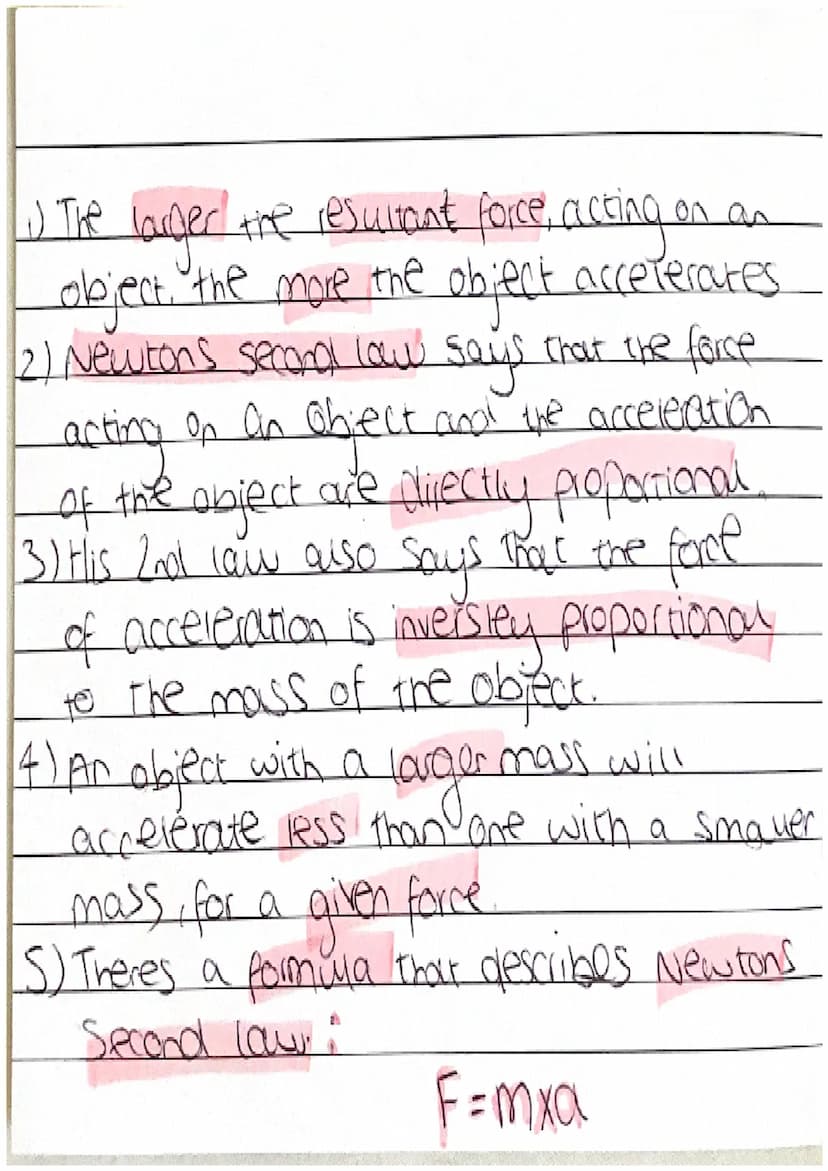 1) The larger the resultant force, acting on an
object, the more the object accelerates
2) Newtons second law says that the force
acting on an object and the acceleration
of the object are directly proportional.
3) His 2nd law also says that the force
of acceleration is inversley proportional
to the mass of the object.
4) An object with a larger mass will
accelerate less than one with a smaller
mass, for a given force.
5) Theres a formula that describes Newtons
Second law:
F=mxa